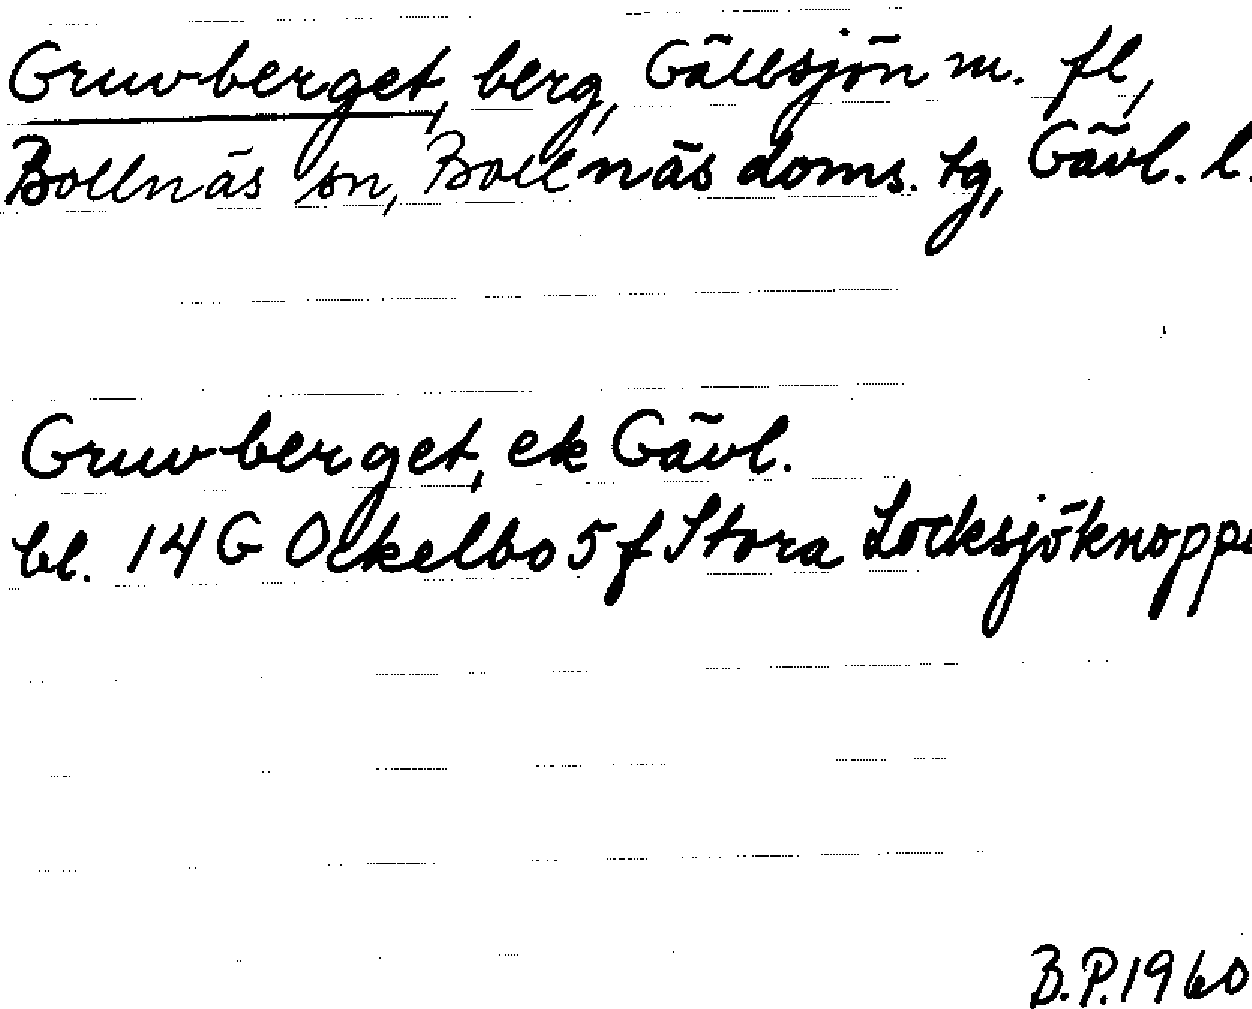 Gruvberget, berg, Gällsjön m. fl,
Bollnäs sn, Bollnäs doms. tg, Gävl. l.
Gruvberget, ek Gävl.
bl. 14 G Ockelbo 5 f Stora Locksjöknoppe
B.P. 1960